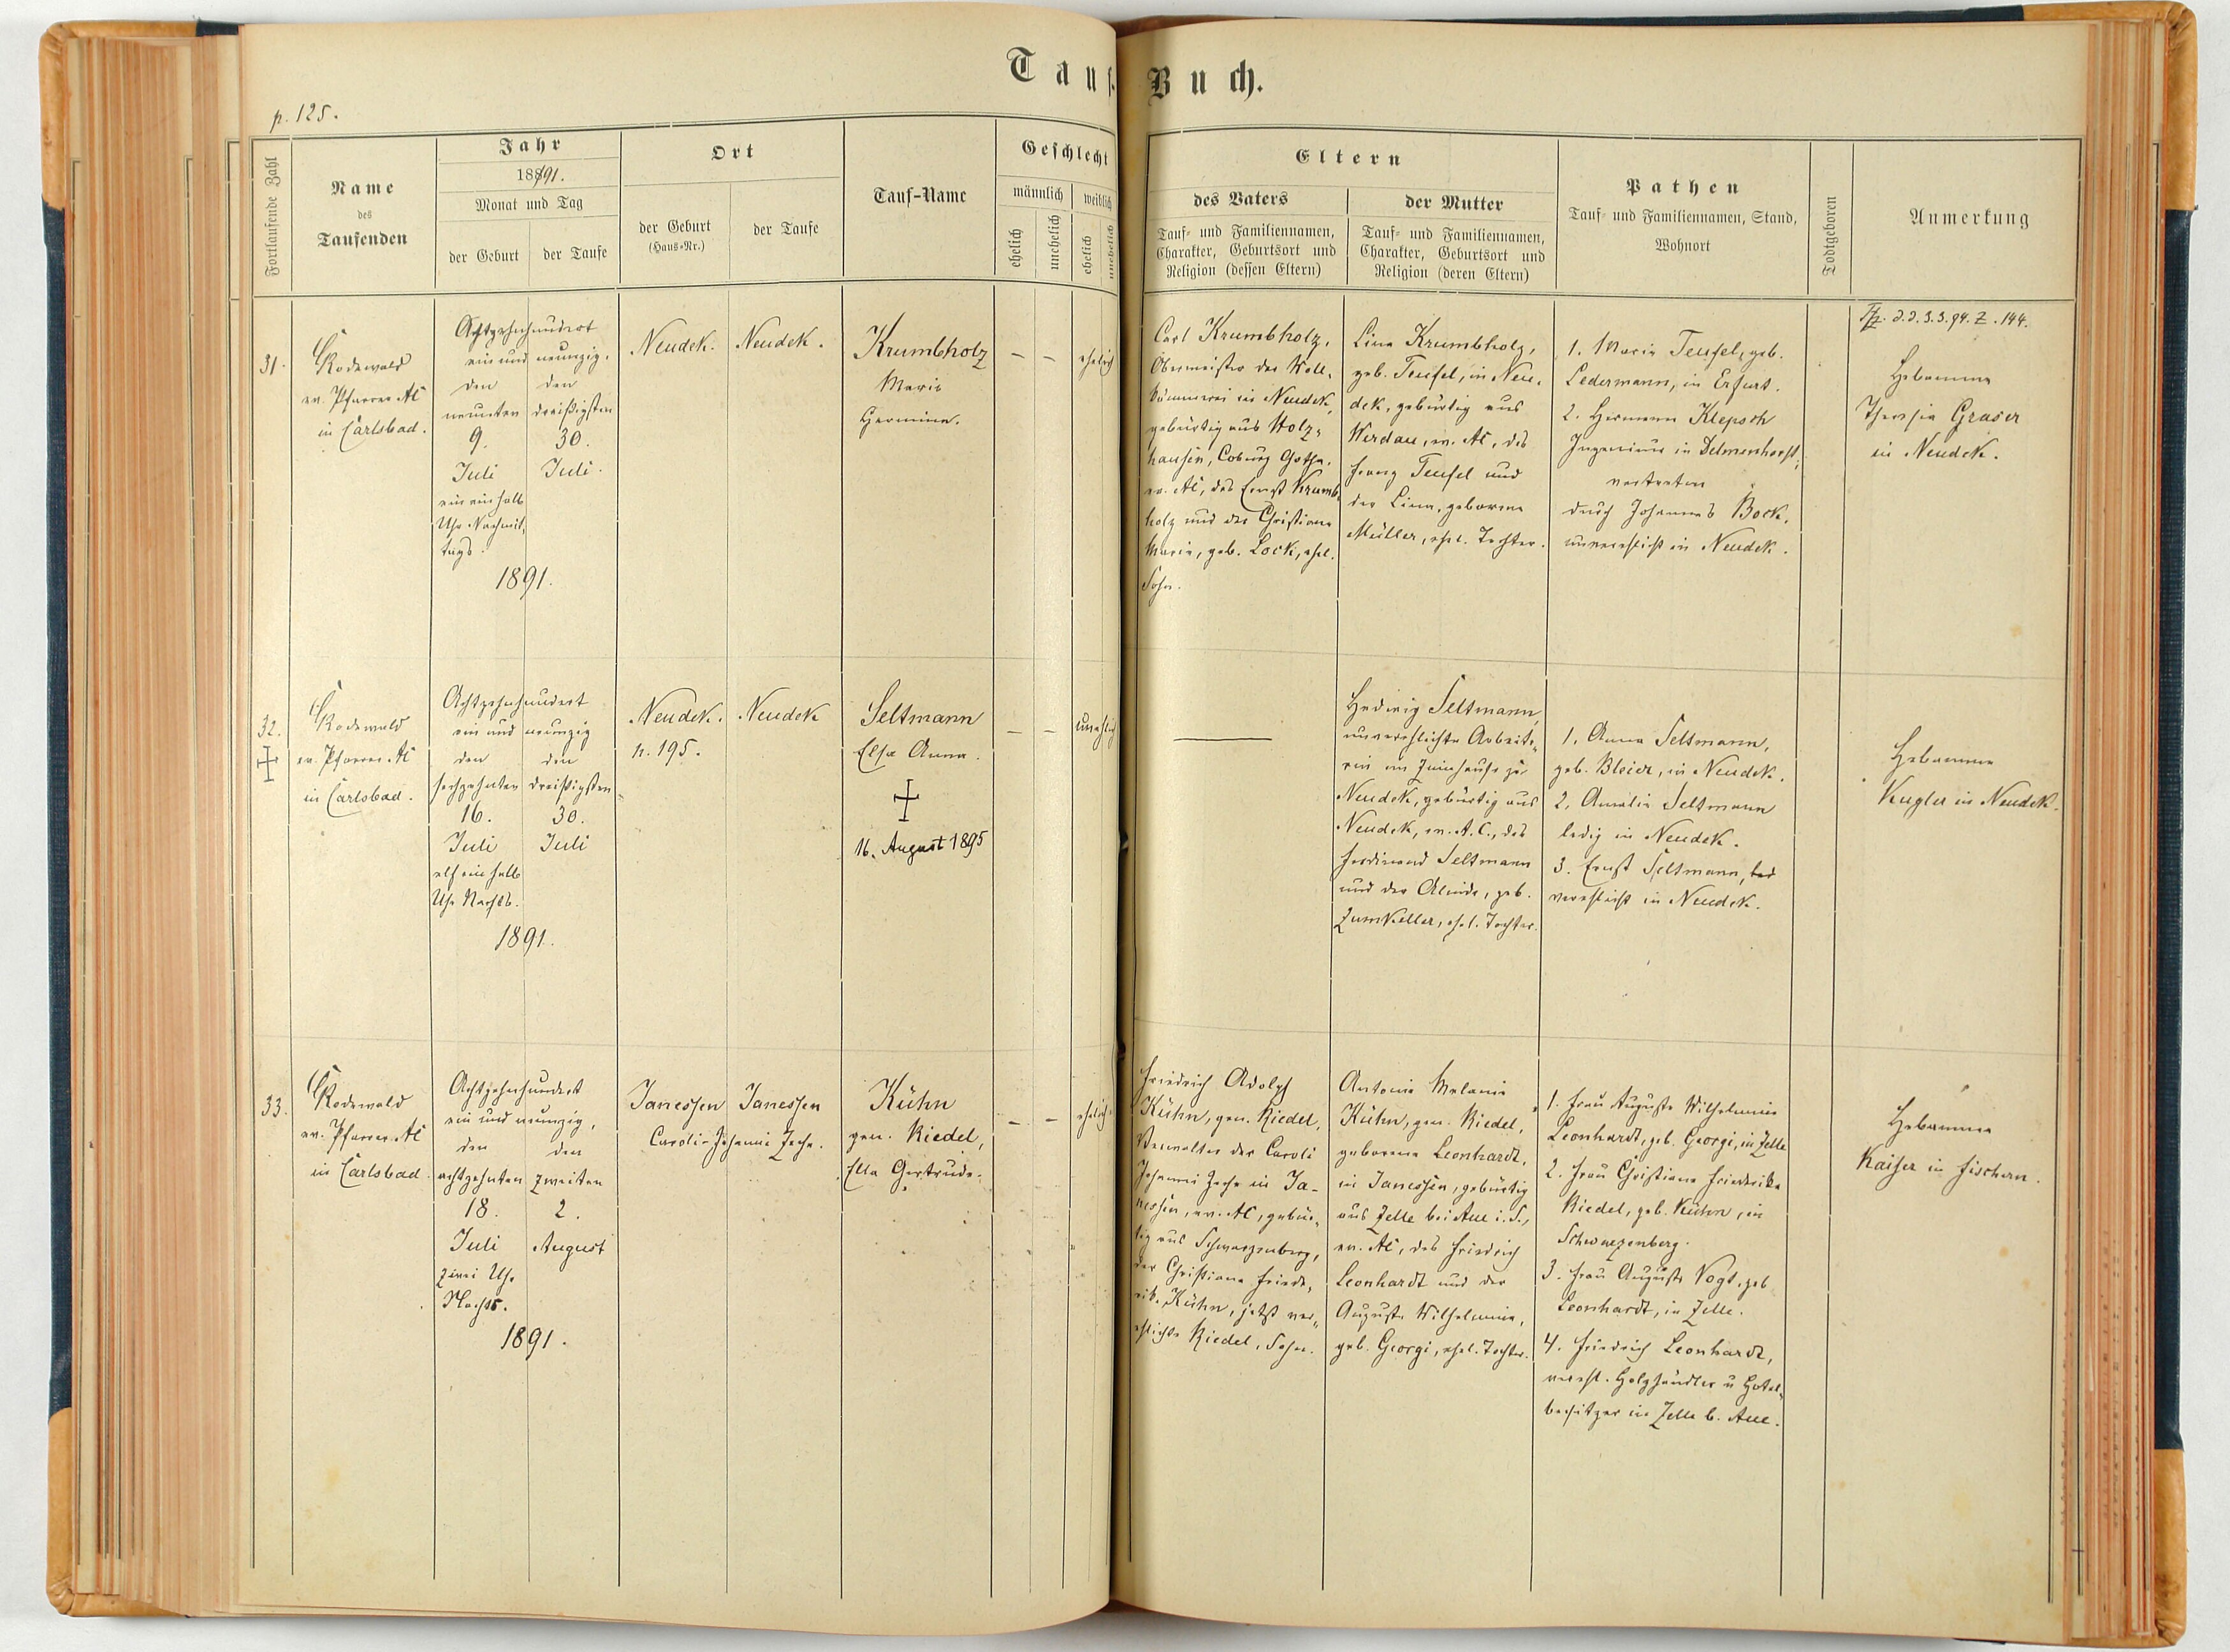 Tauf-Buch.
p. 125.
Fortlaufende Zahl
Name
des
Taufenden
Jahr
1891.
Monat und Tag
der Geburt
der Taufe
Ort
der Geburt
(Haus-Nr.)
der Taufe
Tauf-Name
Geschlecht
männlich
weiblich
ehelich
unehelich
ehelich
unehelich
Eltern
des Vaters
Tauf- und Familiennamen,
Charakter, Geburtsort und
Religion (dessen Eltern)
der Mutter
Tauf- und Familiennamen,
Charakter, Geburtsort und
Religion (deren Eltern)
Pathen
Tauf- und Familiennamen, Stand,
Wohnort
Todtgeboren
Anmerkung
31.
Rodewald
ev. Pfarrer AC
in Carlsbad.
Achtzehnhundert
ein und neunzig.
den
neunten
9.
Juli
ein einhalb
Uhr Nachmit-
tags.
den
dreißigsten
30.
Juli.
1891.
Neudek.
Neudek.
Krumbholz
Marie
Hermine.
– –
ehelich
Carl Krumbholz,
Obermeister der Woll-
kämmerei in Neudek,
gebürtig aus Holz-
hausen, Coburg Gotha,
ev. AC, des Ernst Krumb-
holz und der Christiane
Marie, geb. Lock, ehel.
Sohn.
Lina Krumbholz,
geb. Teufel, in Neu-
dek, gebürtig aus
Werdau, ev. AC, des
Franz Teufel und
der Lina, geborene
Müller, ehel. Tochter.
1. Marie Teufel, geb.
Ledermann, in Erfurt.
2. Hermann Klepsch
Ingenieur in Delmenhorst,
vertreten
durch Johannes Bock,
unverehlicht in Neudek.
d. d. 3.3.94. Z. 144.
Hebamme
Theresia Graser
in Neudek.
32.
Rodewald
ev. Pfarrer AC
in Carlsbad.
Achtzehnhundert
ein und neunzig
den
sechzehnten
16.
Juli
elf einhalb
Uhr Nachts.
den
dreißigsten
30.
Juli
1891.
Neudek.
n. 195.
Neudek
Seltmann
Elsa Anna.
16. August 1895
– –
unehelich
Hedwig Seltmann,
unverehlichte Arbeite-
rin im Zinnhause zu
Neudek, gebürtig aus
Neudek, ev. A.C., des
Ferdinand Seltmann
und der Alinde, geb.
Zumkeller, ehel. Tochter.
1. Anna Seltmann,
geb. Bleier, in Neudek.
2. Amalie Seltmann
ledig in Neudek.
3. Ernst Seltmann, led
verehlicht in Neudek.
Hebamme
Kugler in Neudek.
33.
Rodewald
ev. Pfarrer AC
in Carlsbad
Achtzehnhundert
ein und neunzig,
den
achtzehnten
18.
Juli
zwei Uhr
Nachts.
den
zweiten
2.
August
1891.
Janessen
Janessen
Caroli-Johanni Zeche.
Kühn
gen. Riedel,
Ella Gertrude.
– –
ehelich
Friedrich Adolph
Kühn, gen. Riedel,
Verwalter der Caroli
Johanni Zeche in Ja-
nessen, ev. AC, gebür-
tig aus Schwarzenberg,
der Christiane Friede-
rike Kühn, jetzt ver-
ehlichte Riedel, Sohn.
Antonie Melanie
Kühn, gen. Riedel,
geborene Leonhardt,
in Janessen, gebürtig
aus Zelle bei Aue i. S.,
ev. AC, des Friedrich
Leonhardt und der
Auguste Wilhelmine,
geb. Georgi, ehel. Tochter.
1. Frau Auguste Wilhelmine
Leonhardt, geb. Georgi, in Zelle
2. Frau Christiane Friederike
Riedel, geb. Kühn, in
Schwarzenberg.
3. Frau Auguste Vogt, geb
Leonhardt, in Zelle.
4. Friedrich Leonhardt,
verehl. Holzhändler u Hotel-
besitzer in Zelle b. Aue.
Hebamme
Kaiser in Fischern.